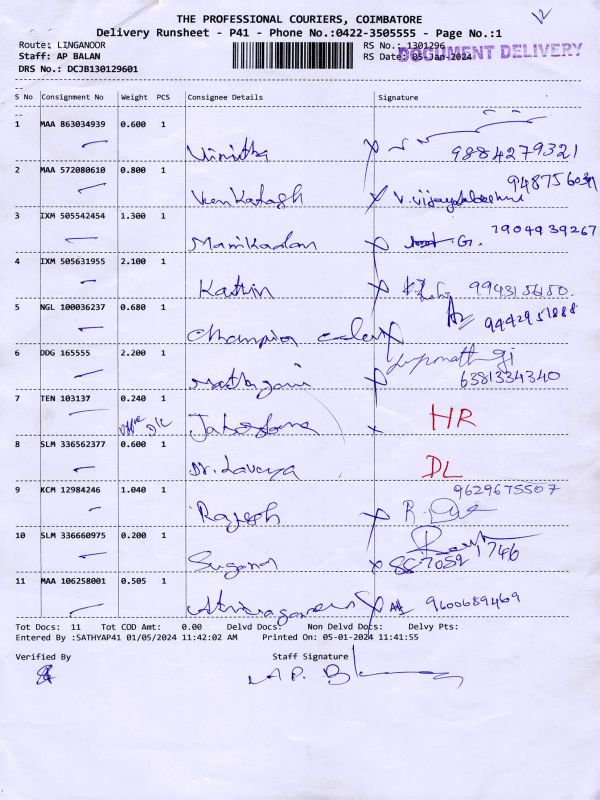 THE PROFESSIONAL COURIERS, COIMBATORE
Delivery Runsheet - P41 - Phone No.:0422-3505555 - Page No.:1
Route: LINGANOOR RS No.: 1301296
Staff: AP BALAN RS Date: 05-Jan-2024
DOCUMENT DELIVERY
DRS No.: DCJB130129601
S No Consignment No Weight PCS Consignee Details Signature
1 MAA 863034939 0.600 1 Vinitha 9884279321
2 MAA 572080610 0.800 1 Venkatagh V. Vijayalakshmi
3 IXM 505542454 1.300 1 Manikadan G. 7904939267
4 IXM 505631955 2.100 1 Kathir 9943156150
5 NGL 100036237 0.680 1 Champion
6 DDG 165555 2.200 1 6381334340
7 TEN 103137 0.240 1 HR
8 SLM 336562377 0.600 1 Dr. Lavanya DL
9 KCM 12984246 1.040 1 Rajesh 9629675507
10 SLM 336660975 0.200 1 Sugana
11 MAA 106258001 0.505 1 9600689469
Tot Docs: 11 Tot COD Amt: 0.00 Delvd Docs: Non Delvd Docs: Delvy Pts:
Entered By :SATHYAP41 01/05/2024 11:42:02 AM Printed On: 05-01-2024 11:41:55
Verified By Staff Signature
A P. B